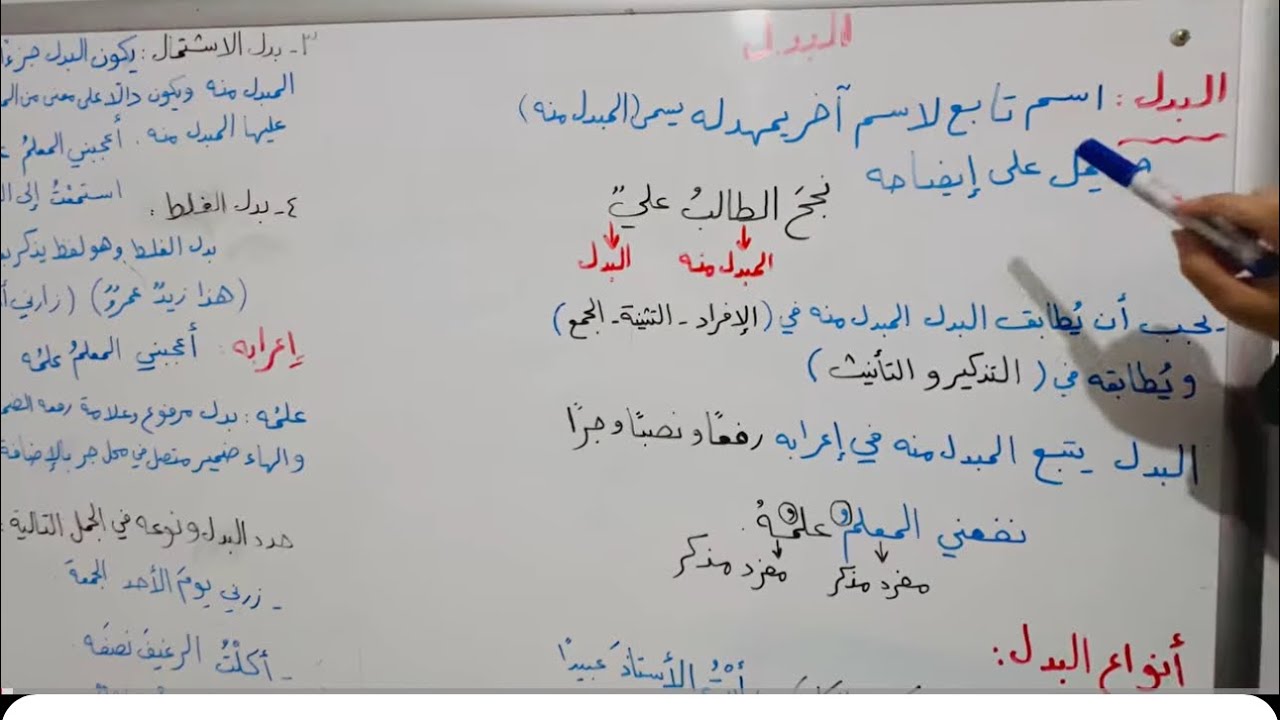 البدل
البدل : اسم تابع لاسم آخر يمهد له يسمى (المبدل منه)
يعمل على إيضاحه
نجحَ الطالبُ عليٌ
المبدل منه البدل
- يجب أن يُطابق البدل المبدل منه في (الإفراد - التثنية - الجمع)
ويُطابقه في ( التذكير و التأنيث )
البدل يتبع المبدل منه في إعرابه رفعًا و نصبًا و جرًا
نفعني المعلمُ علمُهُ .
مفرد مذكر مفرد مذكر
أنواع البدل :
الأستاذَ عبيدًا
٣- بدل الاشتمال : يكون البدل جزءًا
المبدل منه ويكون دالًا على معنى من
عليها المبدل منه . أعجبني المعلمُ
استمعْتُ إلى
٤- بدل الغلط :
بدل الغلط وهو لفظ يذكر
(هذا زيدٌ عمروٌ) (زارني
إعرابه : أعجبني المعلمُ علمُه
علمُه : بدل مرفوع وعلامة رفعه
والهاء ضمير متصل في محل جر بالإضافة
حدد البدل و نوعه في الجمل التالية :
- زرني يومَ الأحد الجمعةَ
- أكلْتُ الرغيفَ نصفَه .